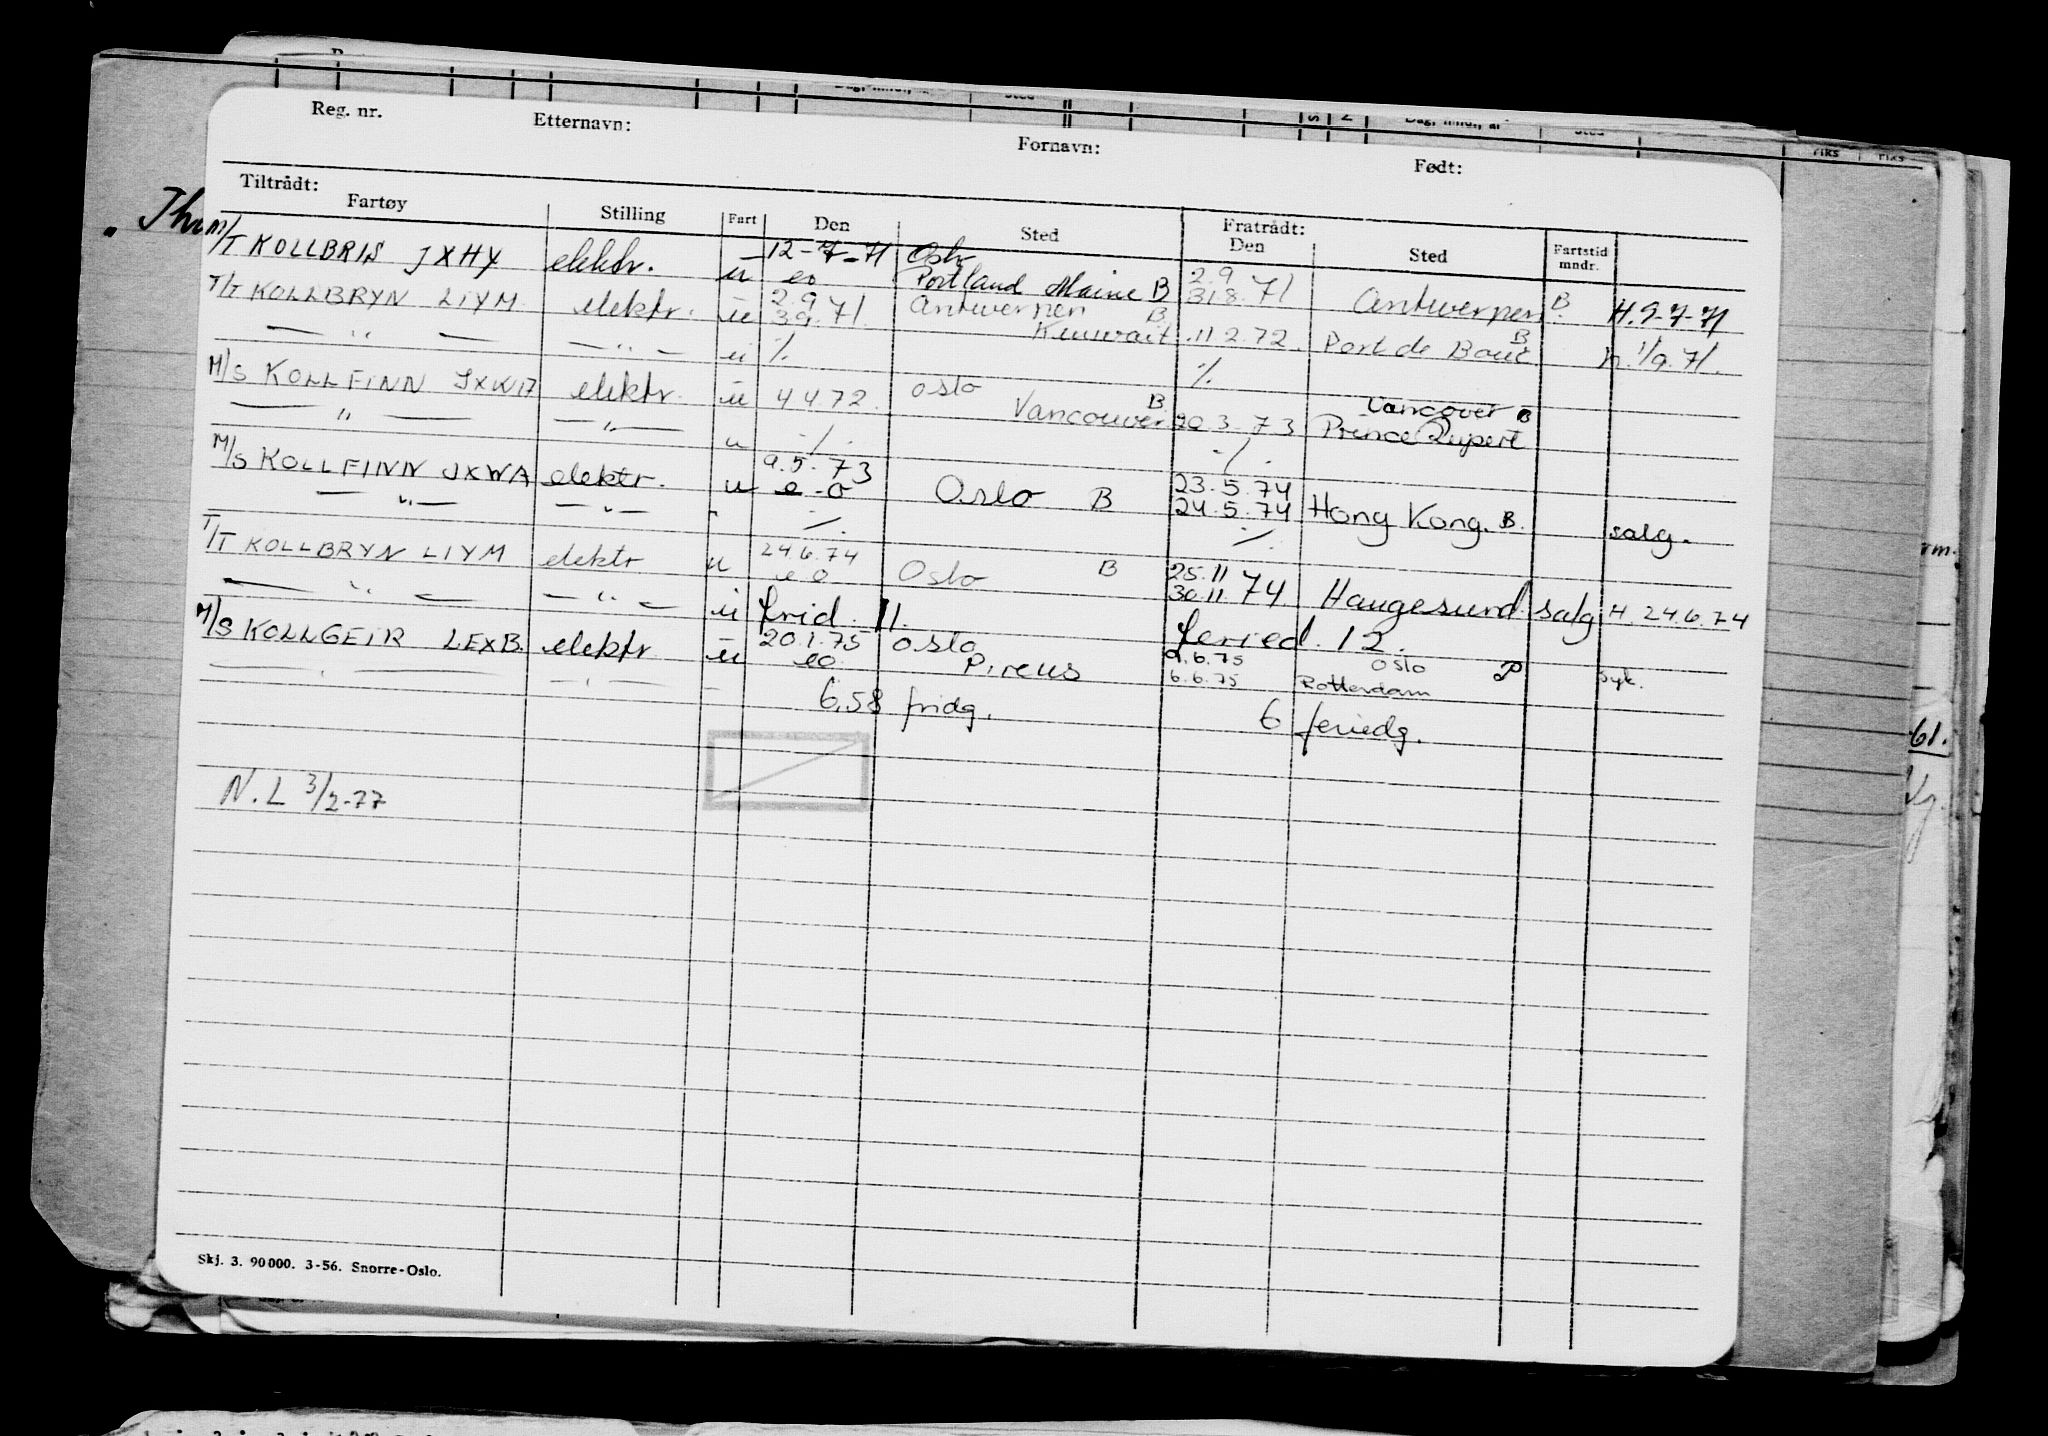 Reg. nr. Etternavn: Fornavn: Født:
Tiltrådt: Fratrådt:
Fartøy Stilling Fart Den Sted Den Sted Fartstid mndr.
M/T KOLLBRIS JXHY elektr. u 12-7-71 Oslo 2.9
eo Portland Maine B 31.8.71 Antwerpen B. H. 9-7-71
T/T KOLLBRYN LIYM elektr. u 2.9 Antwerpen B
3.9.71. Kuwait 11.2.72. Port de Bouc B. h. 1/9.71.
— " — — " — u ./. ./.
M/S KOLLFINN JXWA elektr. u 4 4 72. Oslo B Vancover B
Vancouver 20.3.73 Prince Rupert
— " — — " — u ./. ./.
M/S KOLLFINN JXWA elektr. u 9.5.73 23.5.74
e-o Oslo B 24.5.74 Hong Kong. B. salg.
— " — — " — " ./. ./.
T/T KOLLBRYN LIYM elektr u 24.6.74 25.11
e o Oslo B 30.11.74. Haugesund salg H. 24.6.74
— " — — " — u frid. 11. feried. 12.
M/S KOLLGEIR LEXB. elektr u 20.1.75 Oslo 9.6.75 Oslo P syk.
eo Pireus 6.6.75 Rotterdam
6,58 fridg. 6 feriedg.
N.L 3/2-77
Skj. 3. 90000. 3-56. Snorre-Oslo.
61.